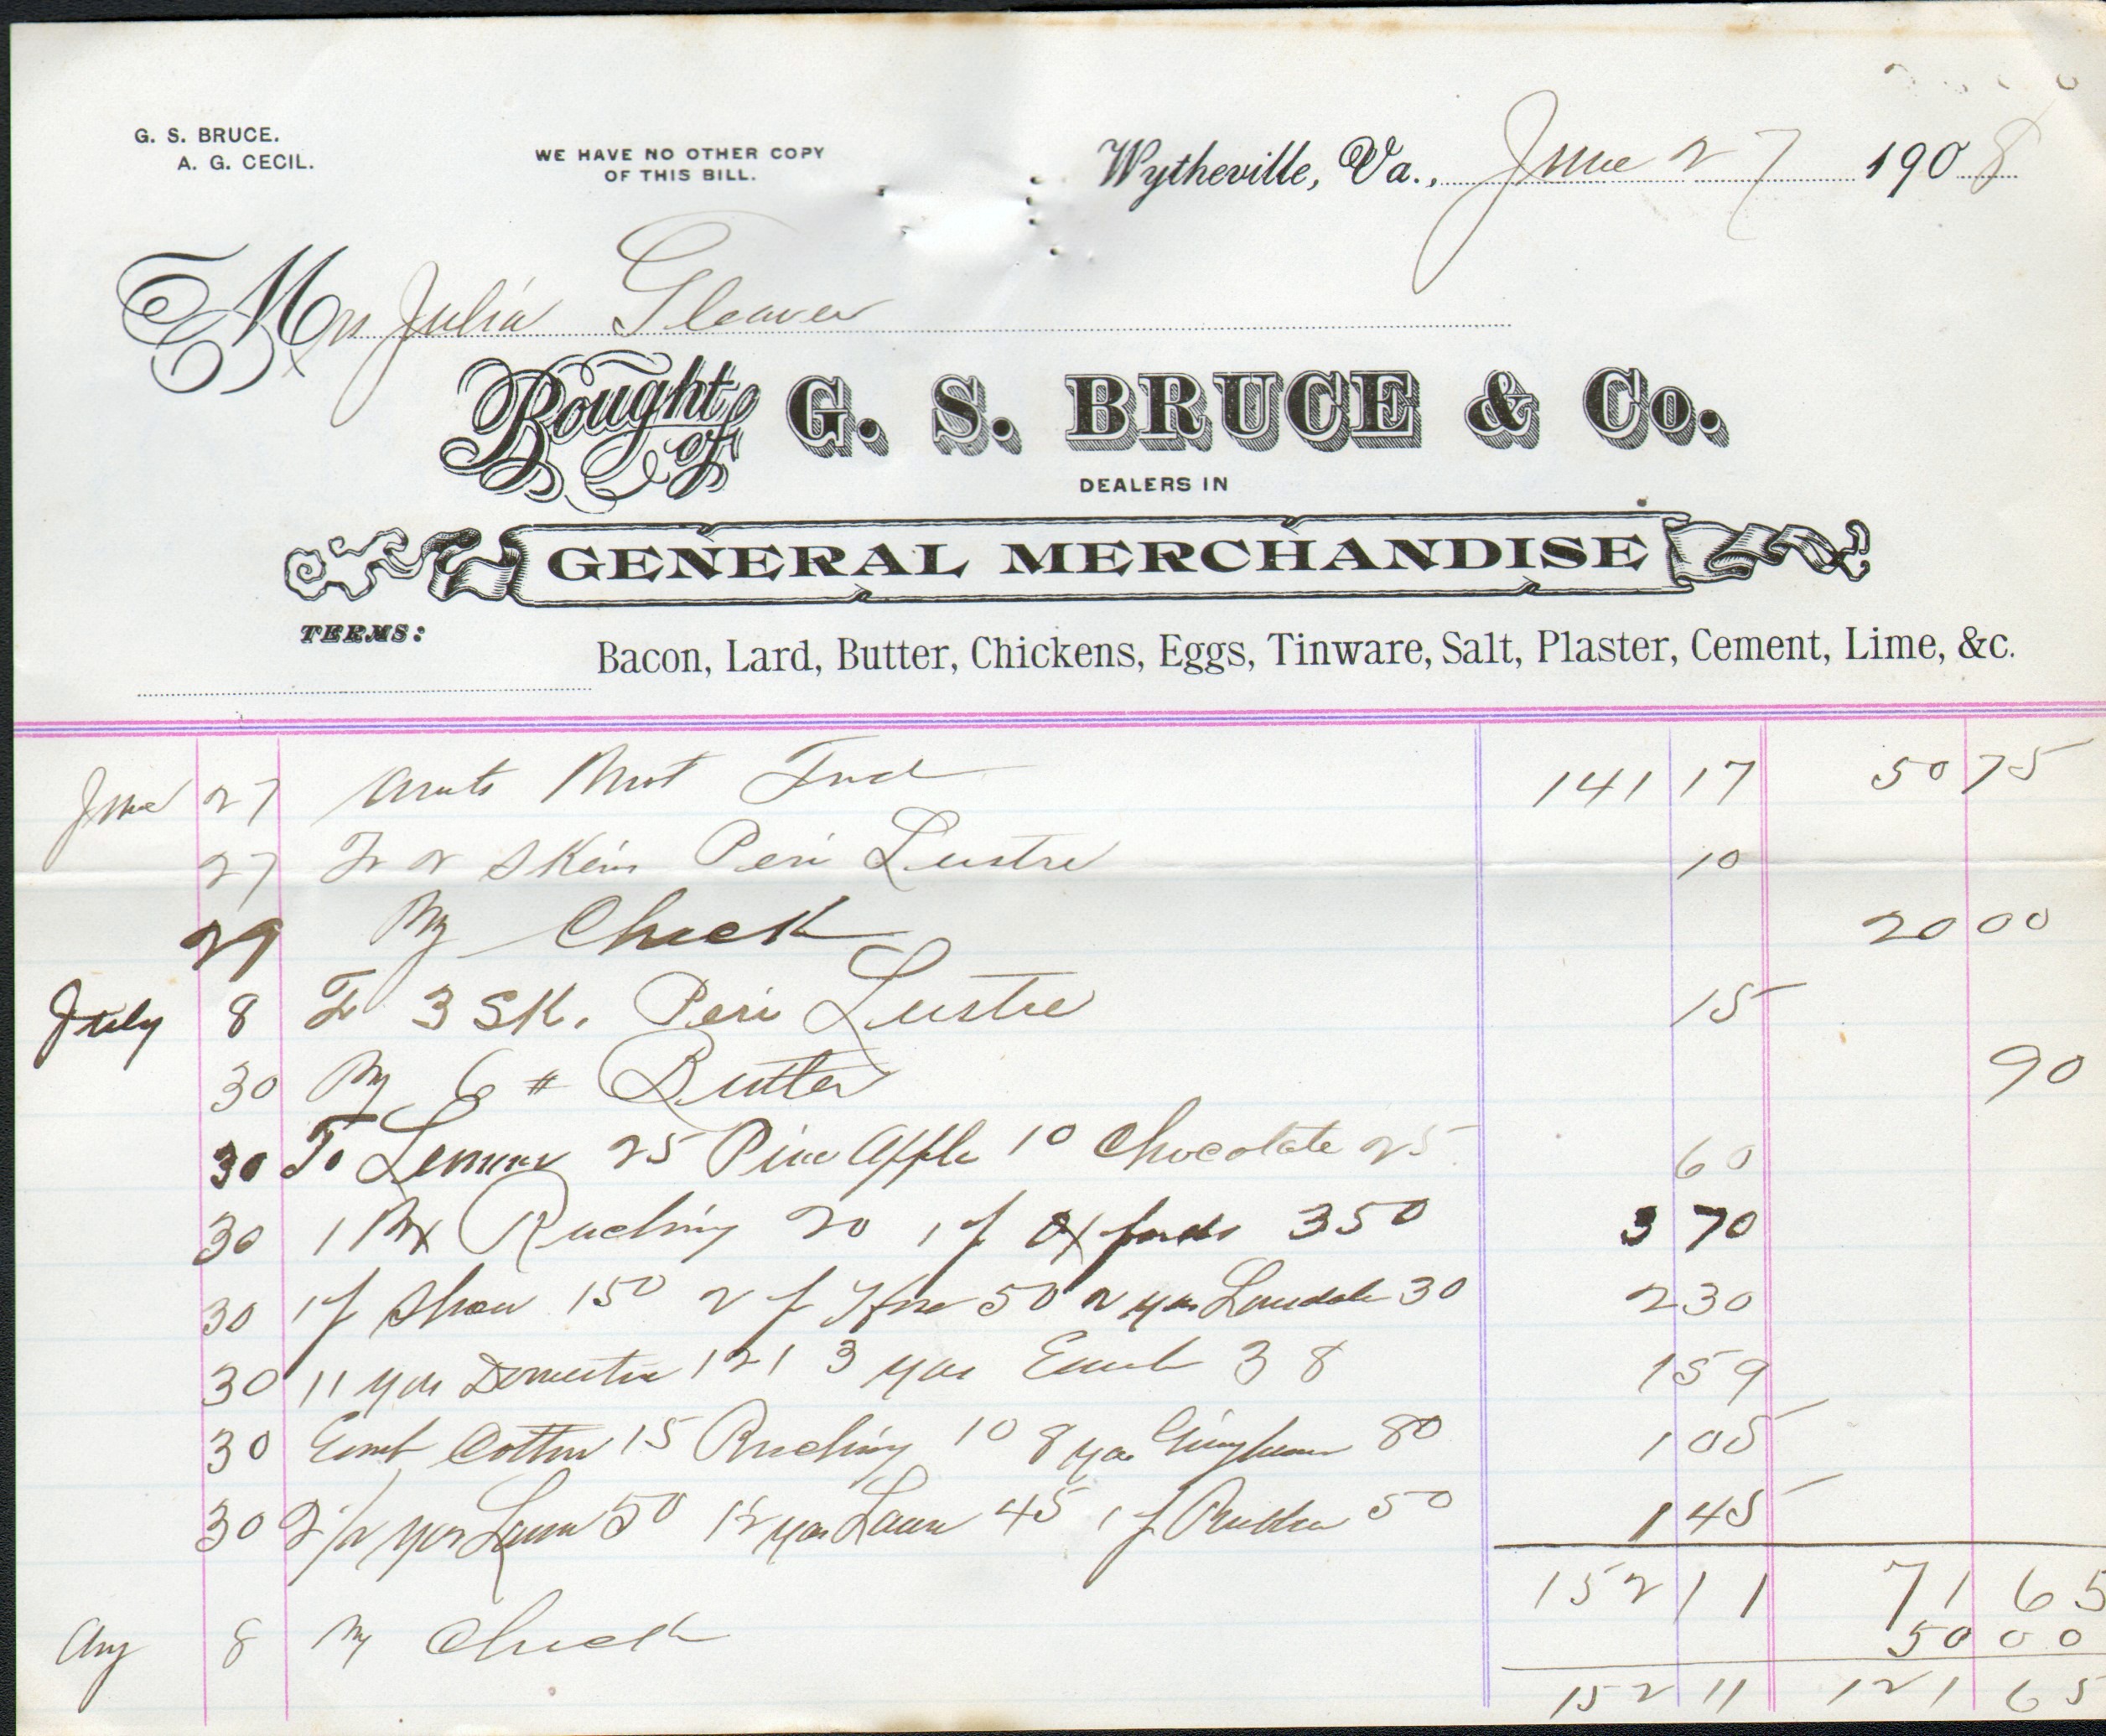 G. S. BRUCE.
A. G. CECIL.
WE HAVE NO OTHER COPY
OF THIS BILL.
Wytheville, Va., June 27 1908
Mrs Julia Gleaves
Bought of G. S. BRUCE & Co.
DEALERS IN
GENERAL MERCHANDISE
TERMS:
Bacon, Lard, Butter, Chickens, Eggs, Tinware, Salt, Plaster, Cement, Lime, &c.
June 27 Amts 141 17 50 75
27 To 2 Skein Peri Lustre 10
29 By Check 20 00
July 8 To 3 SK. Peri Lustre 15
30 By 6 # Butter 90
30 To Lemons 25 Pine Apple 10 Chocolate 25 60
30 1 Bx Ruching 20 1 p Oxfords 350 3 70
30 1 p Shoes 150 2 p Hose 50 2 yds Lonsdale 30 2 30
30 11 yds Domestic 121 3 yds Emb 38 1 59
30 Emb Cotton 15 Ruching 10 8 yds Gingham 80 1 05
30 2 1/2 yds Lawn 50 yds Lawn 45 1 p Rubbers 50 1 45
152 11 71 65
Aug 8 By Check 50 00
152 11 121 65